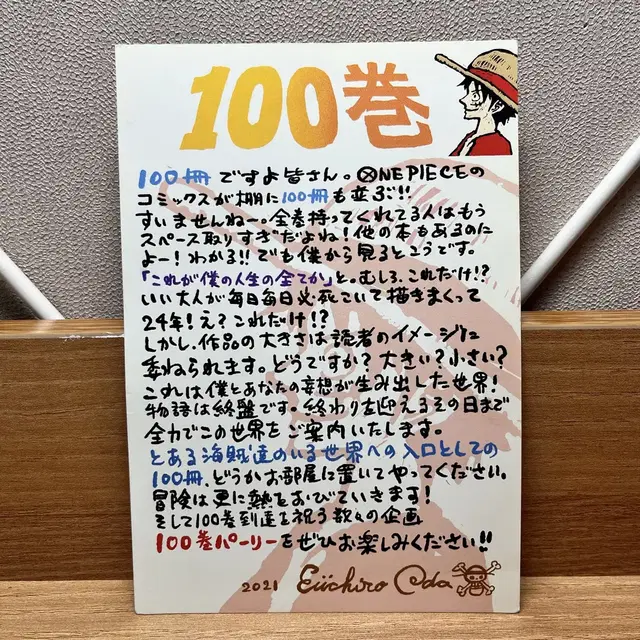 100巻
100冊ですよ皆さん。ONE PIECEの
コミックスが棚に100冊も並ぶ!!
すいませんねー。全巻持ってくれてる人はもう
スペース取りすぎだよね!他の本もあるのに
よー!わかる!!でも僕から見るとこうです。
「これが僕の人生の全てか」と。むしろ、これだけ!?
いい大人が毎日毎日必死こいて描きまくって
24年!え?これだけ!?
しかし、作品の大きさは読者のイメージに
委ねられます。どうですか?大きい?小さい?
これは僕とあなたの妄想が生み出した世界!
物語は終盤です。終わりを迎えるその日まで
全力でこの世界をご案内いたします。
とある海賊達のいる世界への入口としての
100冊、どうかお部屋に置いてやってください。
冒険は更に熱をおびていきます!
そして100巻到達を祝う数々の企画
100巻パーリーをぜひお楽しみください!!
2021 Eiichiro Oda